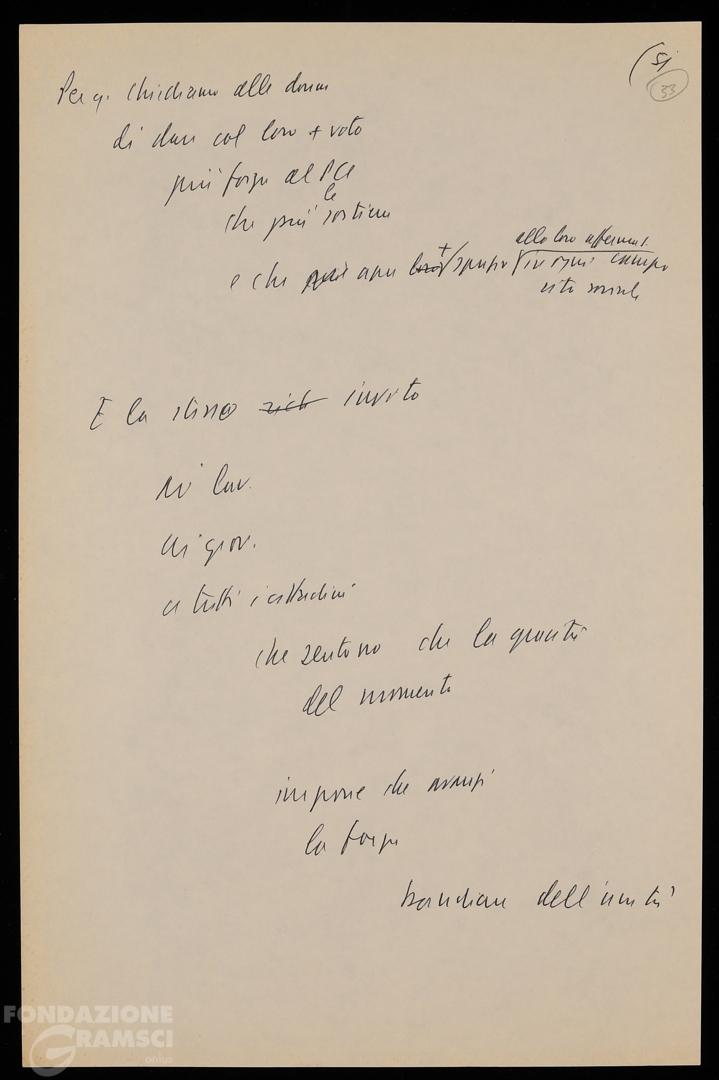 (si
33
Per q. chiediamo alle donne
di dare col loro + voto
più forza al PCI
le
che più sostiene
alla loro affermaz.
e che apre loro + spazio in ogni campo
vita sociale
E lo stesso invito
ai lav.
ai giov.
a tutti i cittadini
che sentono che la gravità
del momento
impone che avanzi
la forza
dell'unità
FONDAZIONE
GRAMSCI
onlus